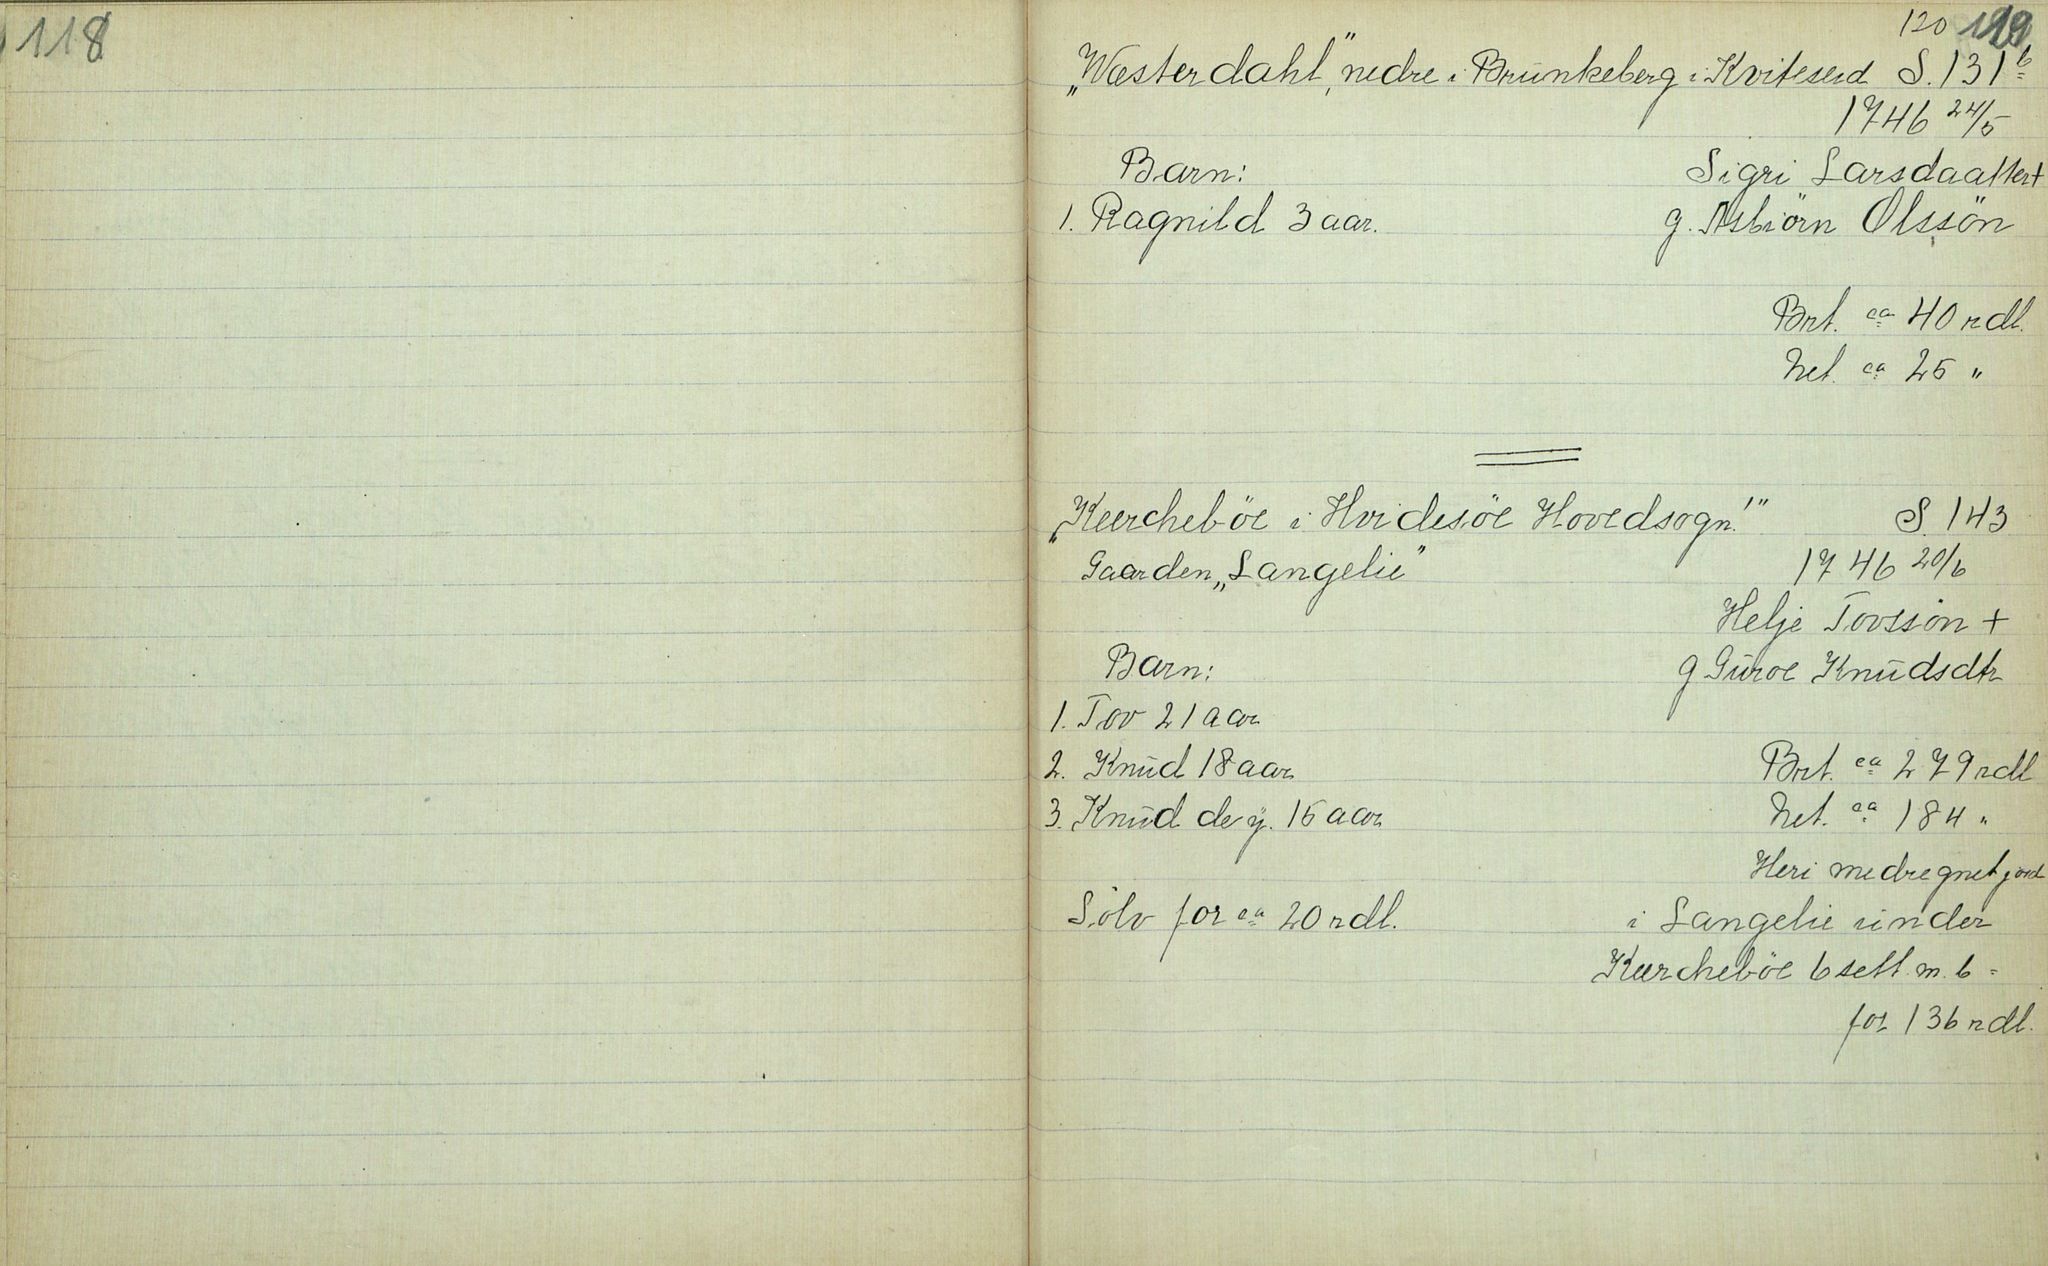 118
120 119
„Wæsterdahl", nedre i Brunkeberg i Kviteseid S. 131 b
1746 24/5
Barn: Sigri Larsdaatter +
1. Ragnild 3 aar. g. Asbiörn Olssön
Brt. ca 40 rdl.
Net. ca 25 "
„Keercheböe i Hvidesöe Hovedsogn!" S. 143
Gaarden „Langelie" 1746 20/6
Helje Tovssön +
Barn: g Guroe Knudsdtr
1. Tov 21 aar
2. Knud 18 aar Brt. ca 279 rdl
3. Knud de y. 15 aar Net. ca 184 "
Heri medregnet jord
Sölv for ca 20 rdl. i Langelie under
Keercheböe 6 sett. m. b =
for 136 rdl.